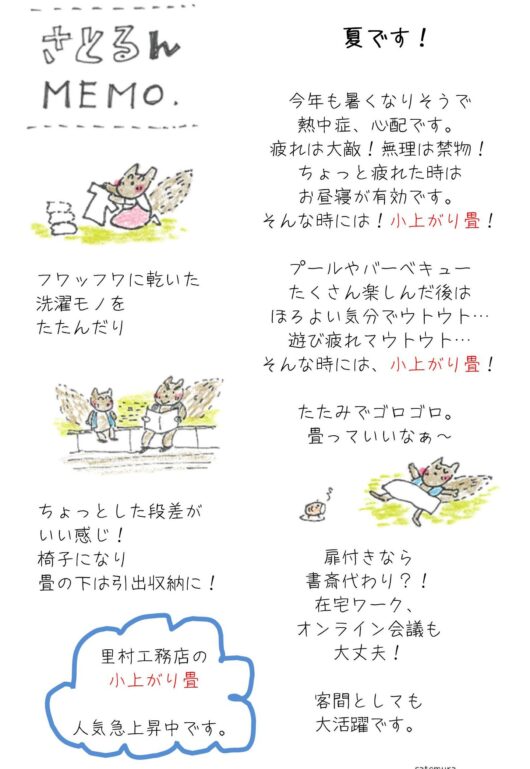 さとるん
MEMO.
フワッフワに乾いた
洗濯モノを
たたんだり
ちょっとした段差が
いい感じ！
椅子になり
畳の下は引出収納に！
里村工務店の
小上がり畳
人気急上昇中です。
夏です！
今年も暑くなりそうで
熱中症、心配です。
疲れは大敵！無理は禁物！
ちょっと疲れた時は
お昼寝が有効です。
そんな時には！小上がり畳！
プールやバーベキュー
たくさん楽しんだ後は
ほろよい気分でウトウト…
遊び疲れてウトウト…
そんな時には、小上がり畳！
たたみでゴロゴロ。
畳っていいなぁ～
扉付きなら
書斎代わり？！
在宅ワーク、
オンライン会議も
大丈夫！
客間としても
大活躍です。